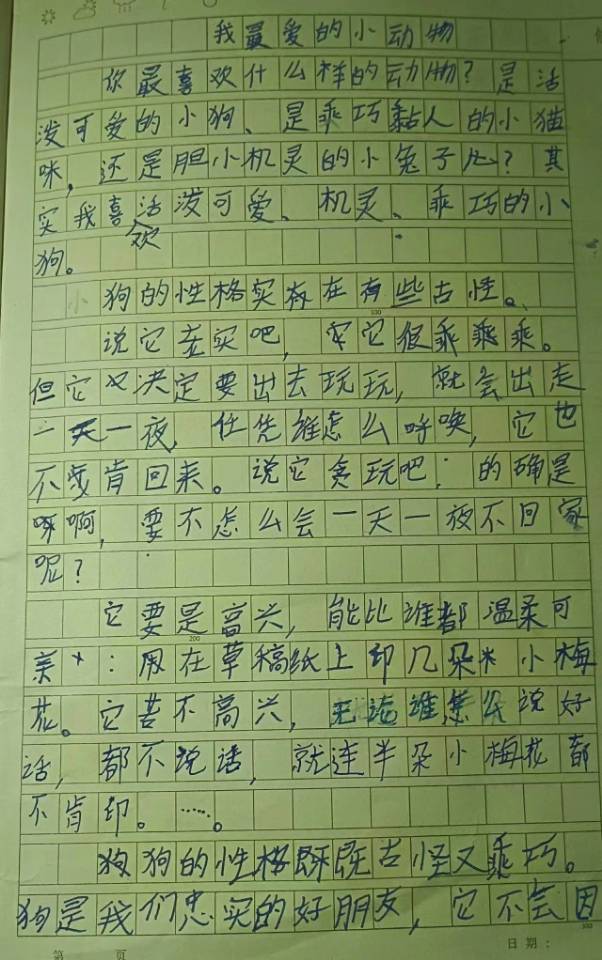 我最爱的小动物
你最喜欢什么样的动物？是活
泼可爱的小狗、是乖巧黏人的小猫
咪，还是胆小机灵的小兔子儿？其
实我喜欢活泼可爱、机灵、乖巧的小
狗。
小狗的性格实在有些古怪。
说它老实吧，它很乖乖乖。
但它又决定要出去玩玩，就会出走
一天一夜，任凭谁怎么呼唤，它也
不肯回来。说它贪玩吧；的确是
呀啊，要不怎么会一天一夜不回家
呢？
它要是高兴，能比谁都温柔可
亲：用在草稿纸上印几朵小梅
花。它若不高兴，无论谁怎么说好
话，都不说话，就连半朵小梅花都
不肯印。……。
狗狗的性格既古怪又乖巧。
狗是我们忠实的好朋友，它不会因
第 页
日期：